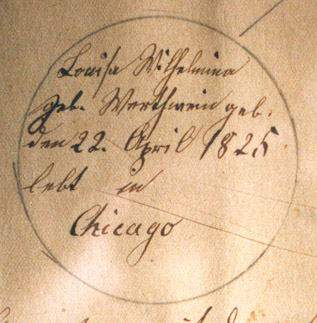 Louisa Wilhelmina
geb. Werthwein geb.
den 22. April 1825
lebt in
Chicago